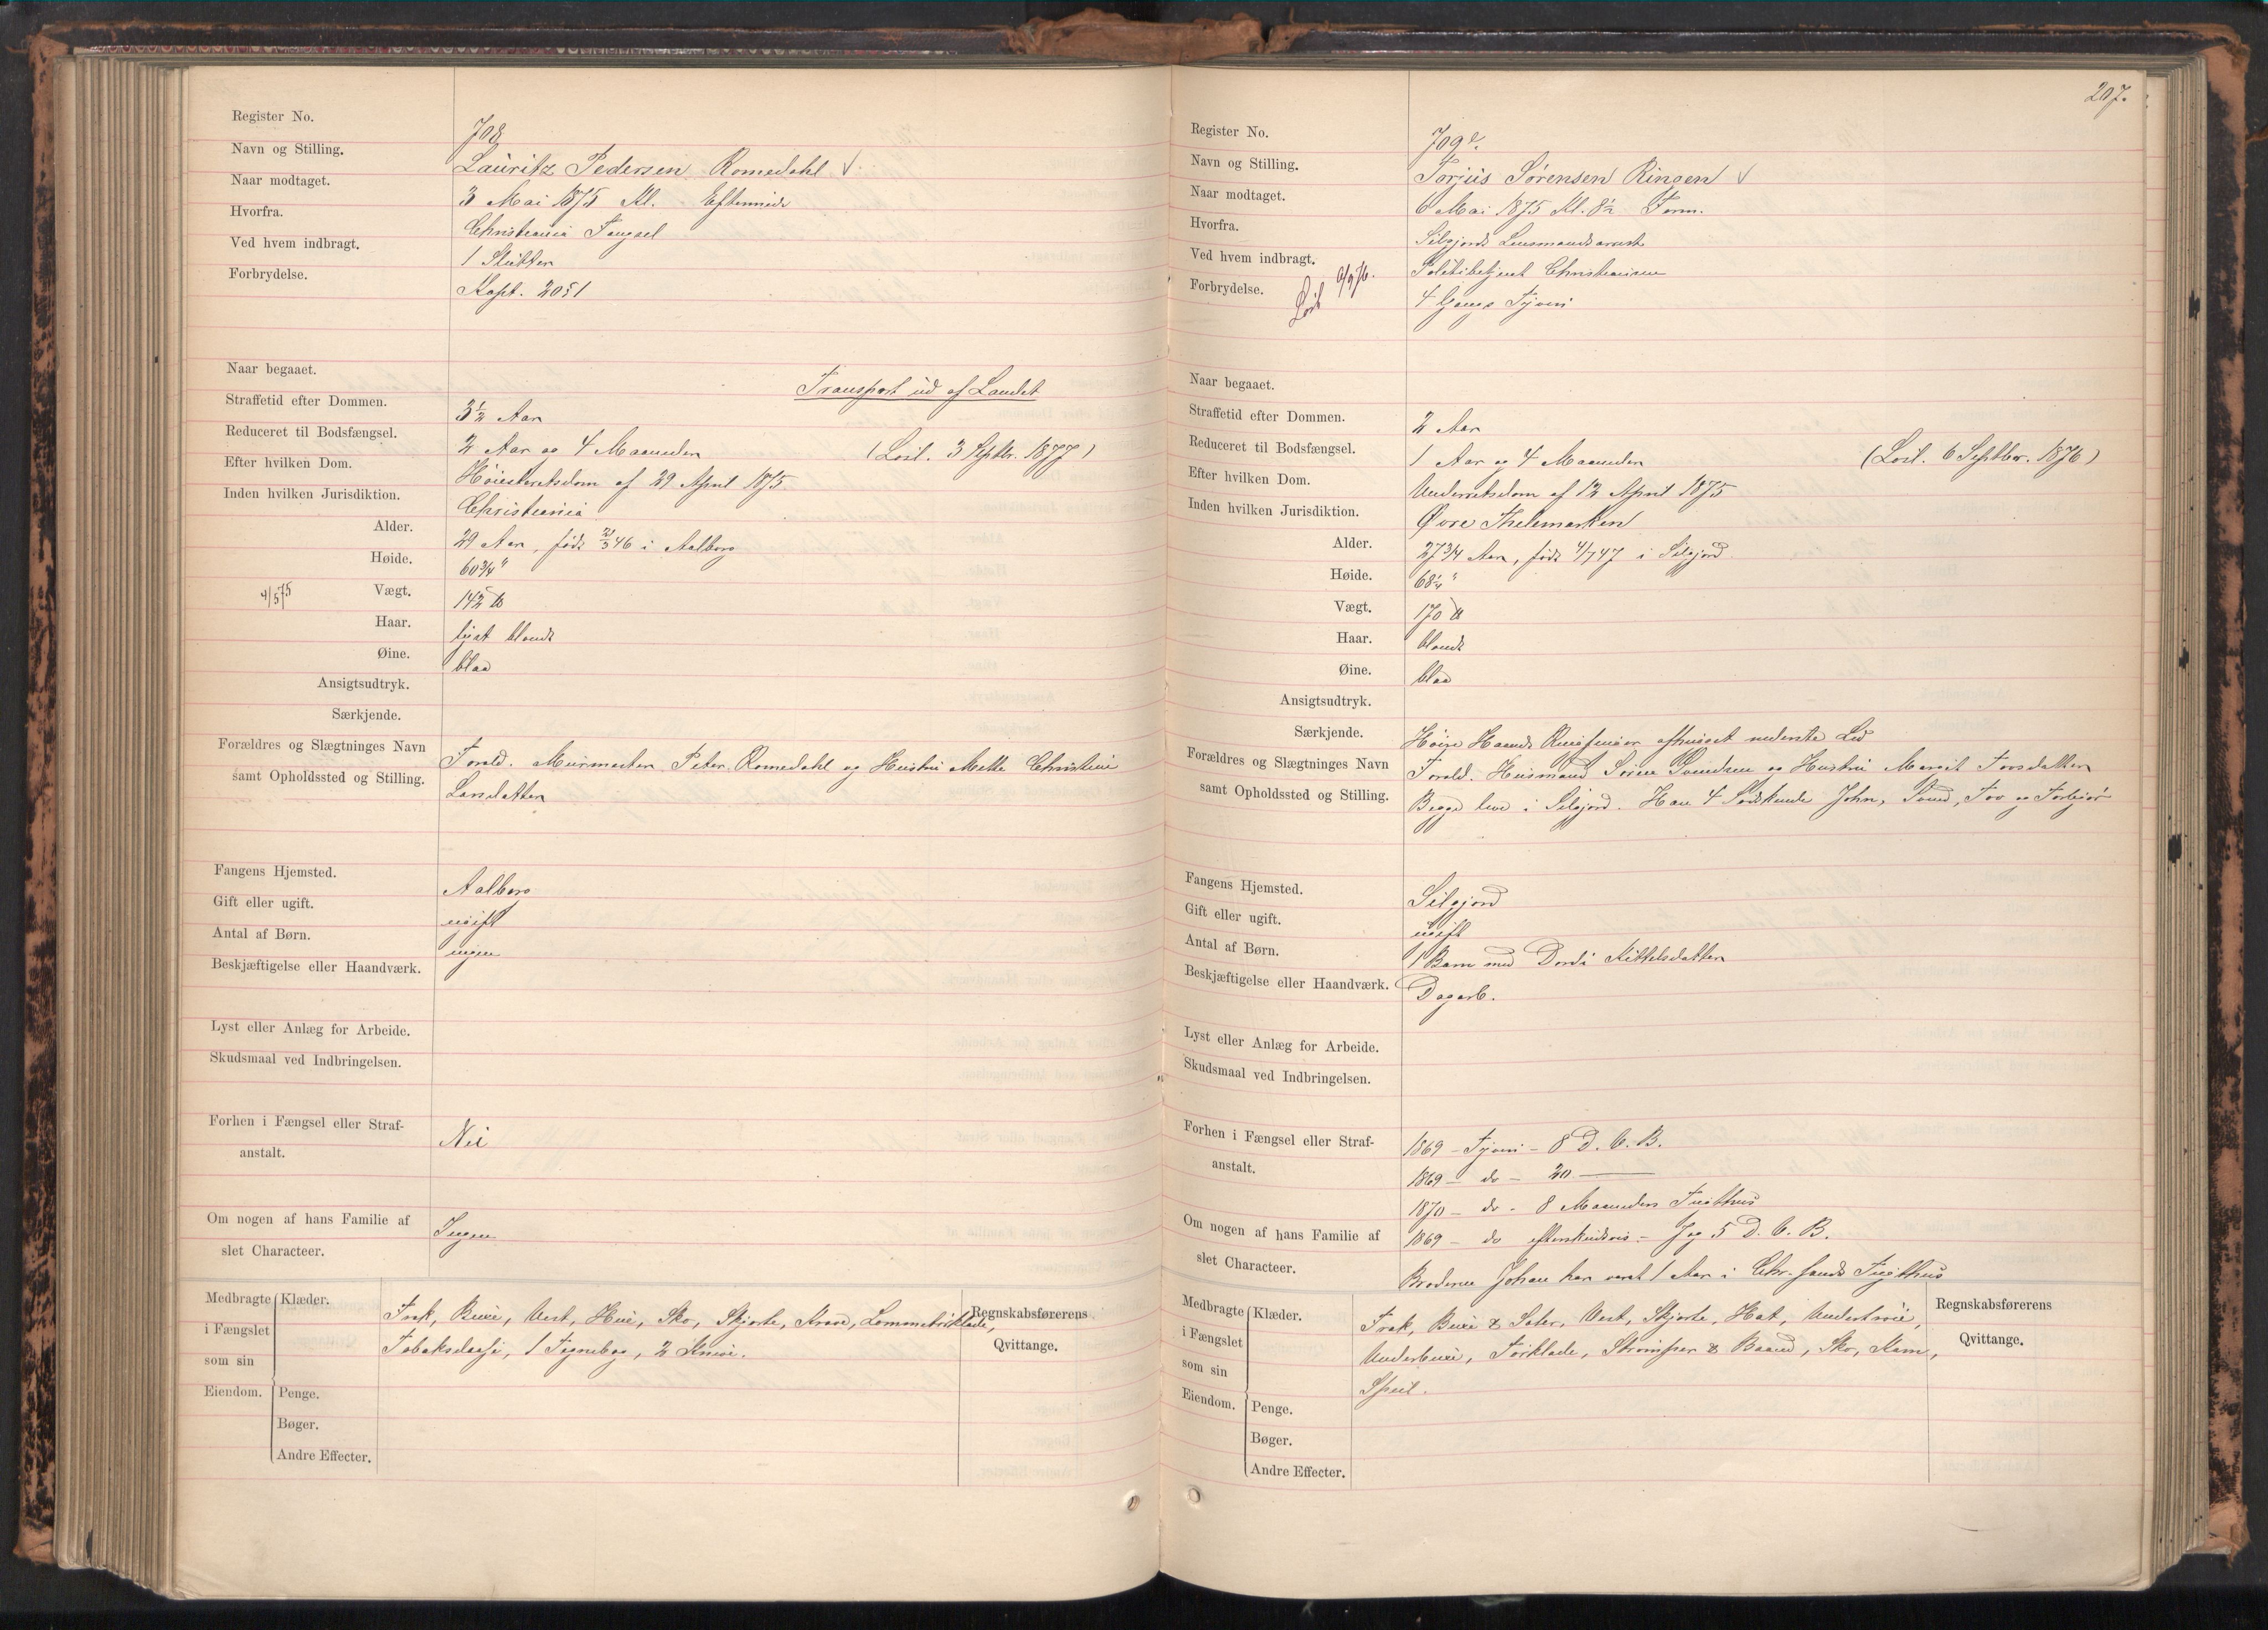 Register No. 708
Navn og Stilling. Lauritz Pedersen Romedahl √
Naar modtaget. 3 Mai 1875 Kl. Eftermidd
Hvorfra. Christiania Fængsel
Ved hvem indbragt. 1 Slutter
Forbrydelse. Kapt. 2051
Naar begaaet.
Transport ud af Landet
Straffetid efter Dommen. 3½ Aar
Reduceret til Bodsfængsel. 2 Aar og 4 Maaneder (Løsl. 3 Septbr. 1877)
Efter hvilken Dom. Høiesteretsdom af 29 April 1875
Inden hvilken Jurisdiktion. Christiania
Alder. 29 Aar, født 2/3 46 i Aalborg
Høide. 60¾"
4/5 75 Vægt. 142 ℔
Haar. lyst blondt
Øine. blaa
Ansigtsudtryk.
Særkjende.
Forældres og Slægtninges Navn Foræld. Murmester Peter Romedahl og Hustru Mette Christine
samt Opholdssted og Stilling. Larsdatter
Fangens Hjemsted. Aalborg
Gift eller ugift. ugift
Antal af Børn. ingen
Beskjæftigelse eller Haandværk.
Lyst eller Anlæg for Arbeide.
Skudsmaal ved Indbringelsen.
Forhen i Fængsel eller Straf- Nei
anstalt.
Om nogen af hans Familie af Ingen
slet Characteer.
Medbragte Klæder. Frak, Buxe, Vest, Hue, Sko, Skjorte, Krave, Lommetørklæde, Regnskabsførerens
i Fængslet Tobaksdaase, 1 Tegnebog, 2 Knive. Qvittange.
som sin
Eiendom. Penge.
Bøger.
Andre Effecter.
207.
Register No. 709
Navn og Stilling. Torjus Sørensen Ringen √
Naar modtaget. 6 Mai 1875 Kl. 8½ Form.
Hvorfra. Silgjords Lensmandsarrest
Ved hvem indbragt. Politibetjent Christensen
Forbrydelse. Løsl 6/9 76. 4 Gange Tyveri
Naar begaaet.
Straffetid efter Dommen. 2 Aar
Reduceret til Bodsfængsel. 1 Aar og 4 Maaneder (Løsl. 6 Septbr. 1876)
Efter hvilken Dom. Underretsdom af 12 April 1875
Inden hvilken Jurisdiktion. Øvre Thelemarken
Alder. 27¾ Aar, født 4/7 47 i Silgjord
Høide. 68¼"
Vægt. 170 ℔
Haar. blondt
Øine. blaa
Ansigtsudtryk.
Særkjende. Høire Haands Ringfinger afhugget nederste Led
Forældres og Slægtninges Navn Foræld. Husmand Søren Svendsen og Hustru Margit Torsdatter
samt Opholdssted og Stilling. Begge leve i Silgjord. Har 4 Sødskende John, Svend, Tor og Torbjør
Fangens Hjemsted. Silgjord
Gift eller ugift. ugift
Antal af Børn. 1 Barn med Dordi Kittelsdatter
Beskjæftigelse eller Haandværk. Dagarb.
Lyst eller Anlæg for Arbeide.
Skudsmaal ved Indbringelsen.
Forhen i Fængsel eller Straf- 1869 - Tyveri - 8 D. V. B.
anstalt. 1869 - do - 20 —
1870 - do - 8 Maaneders Tugthus
Om nogen af hans Familie af 1869 - do efterskudsvis - 7 og 5 D. V. B.
slet Characteer. Broderen Johan har været 1 Aar i Chr.sands Tugthus
Medbragte Klæder. Frak, Buxe & Seler, Vest, Skjorte, Hat, Undertrøie, Regnskabsførerens
i Fængslet Underbuxe, Tørklæde, Strømper & Baand, Sko, Kam, Qvittange.
som sin Speil.
Eiendom. Penge.
Bøger.
Andre Effecter.